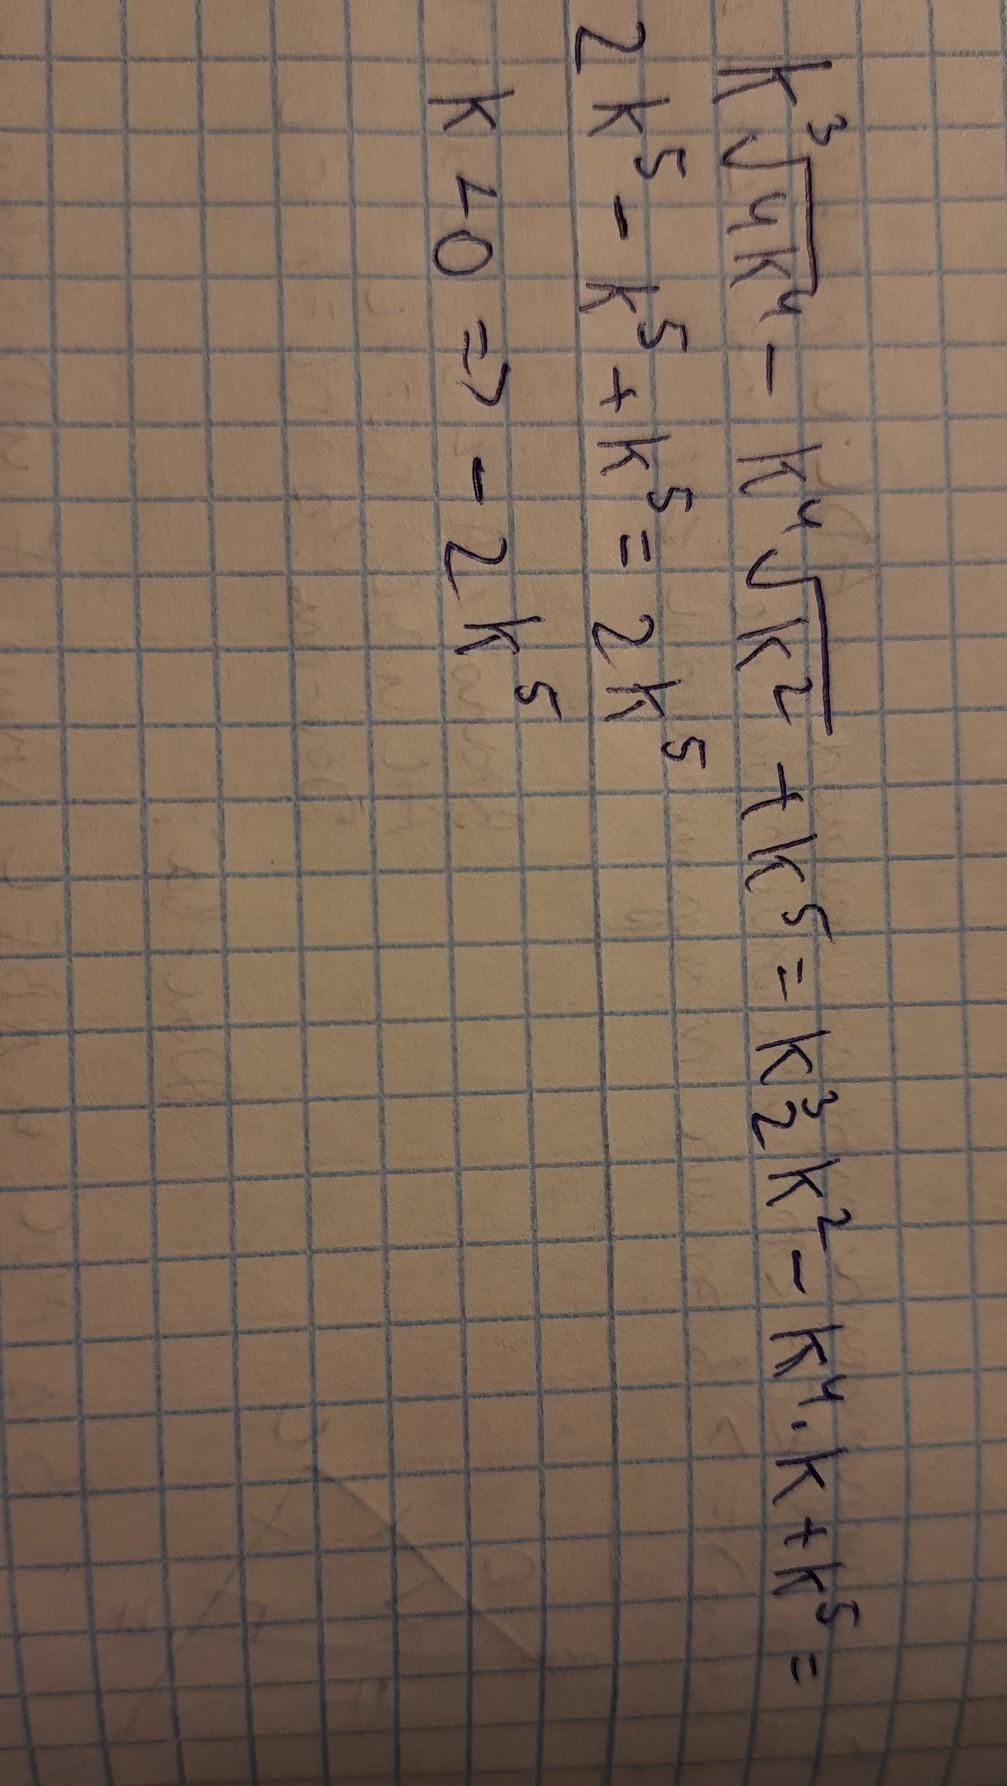 k³√4k⁴ - k⁴√k² + k⁵ = k³2k² - k⁴·k + k⁵ =
2k⁵ - k⁵ + k⁵ = 2k⁵
k<0 => - 2k⁵